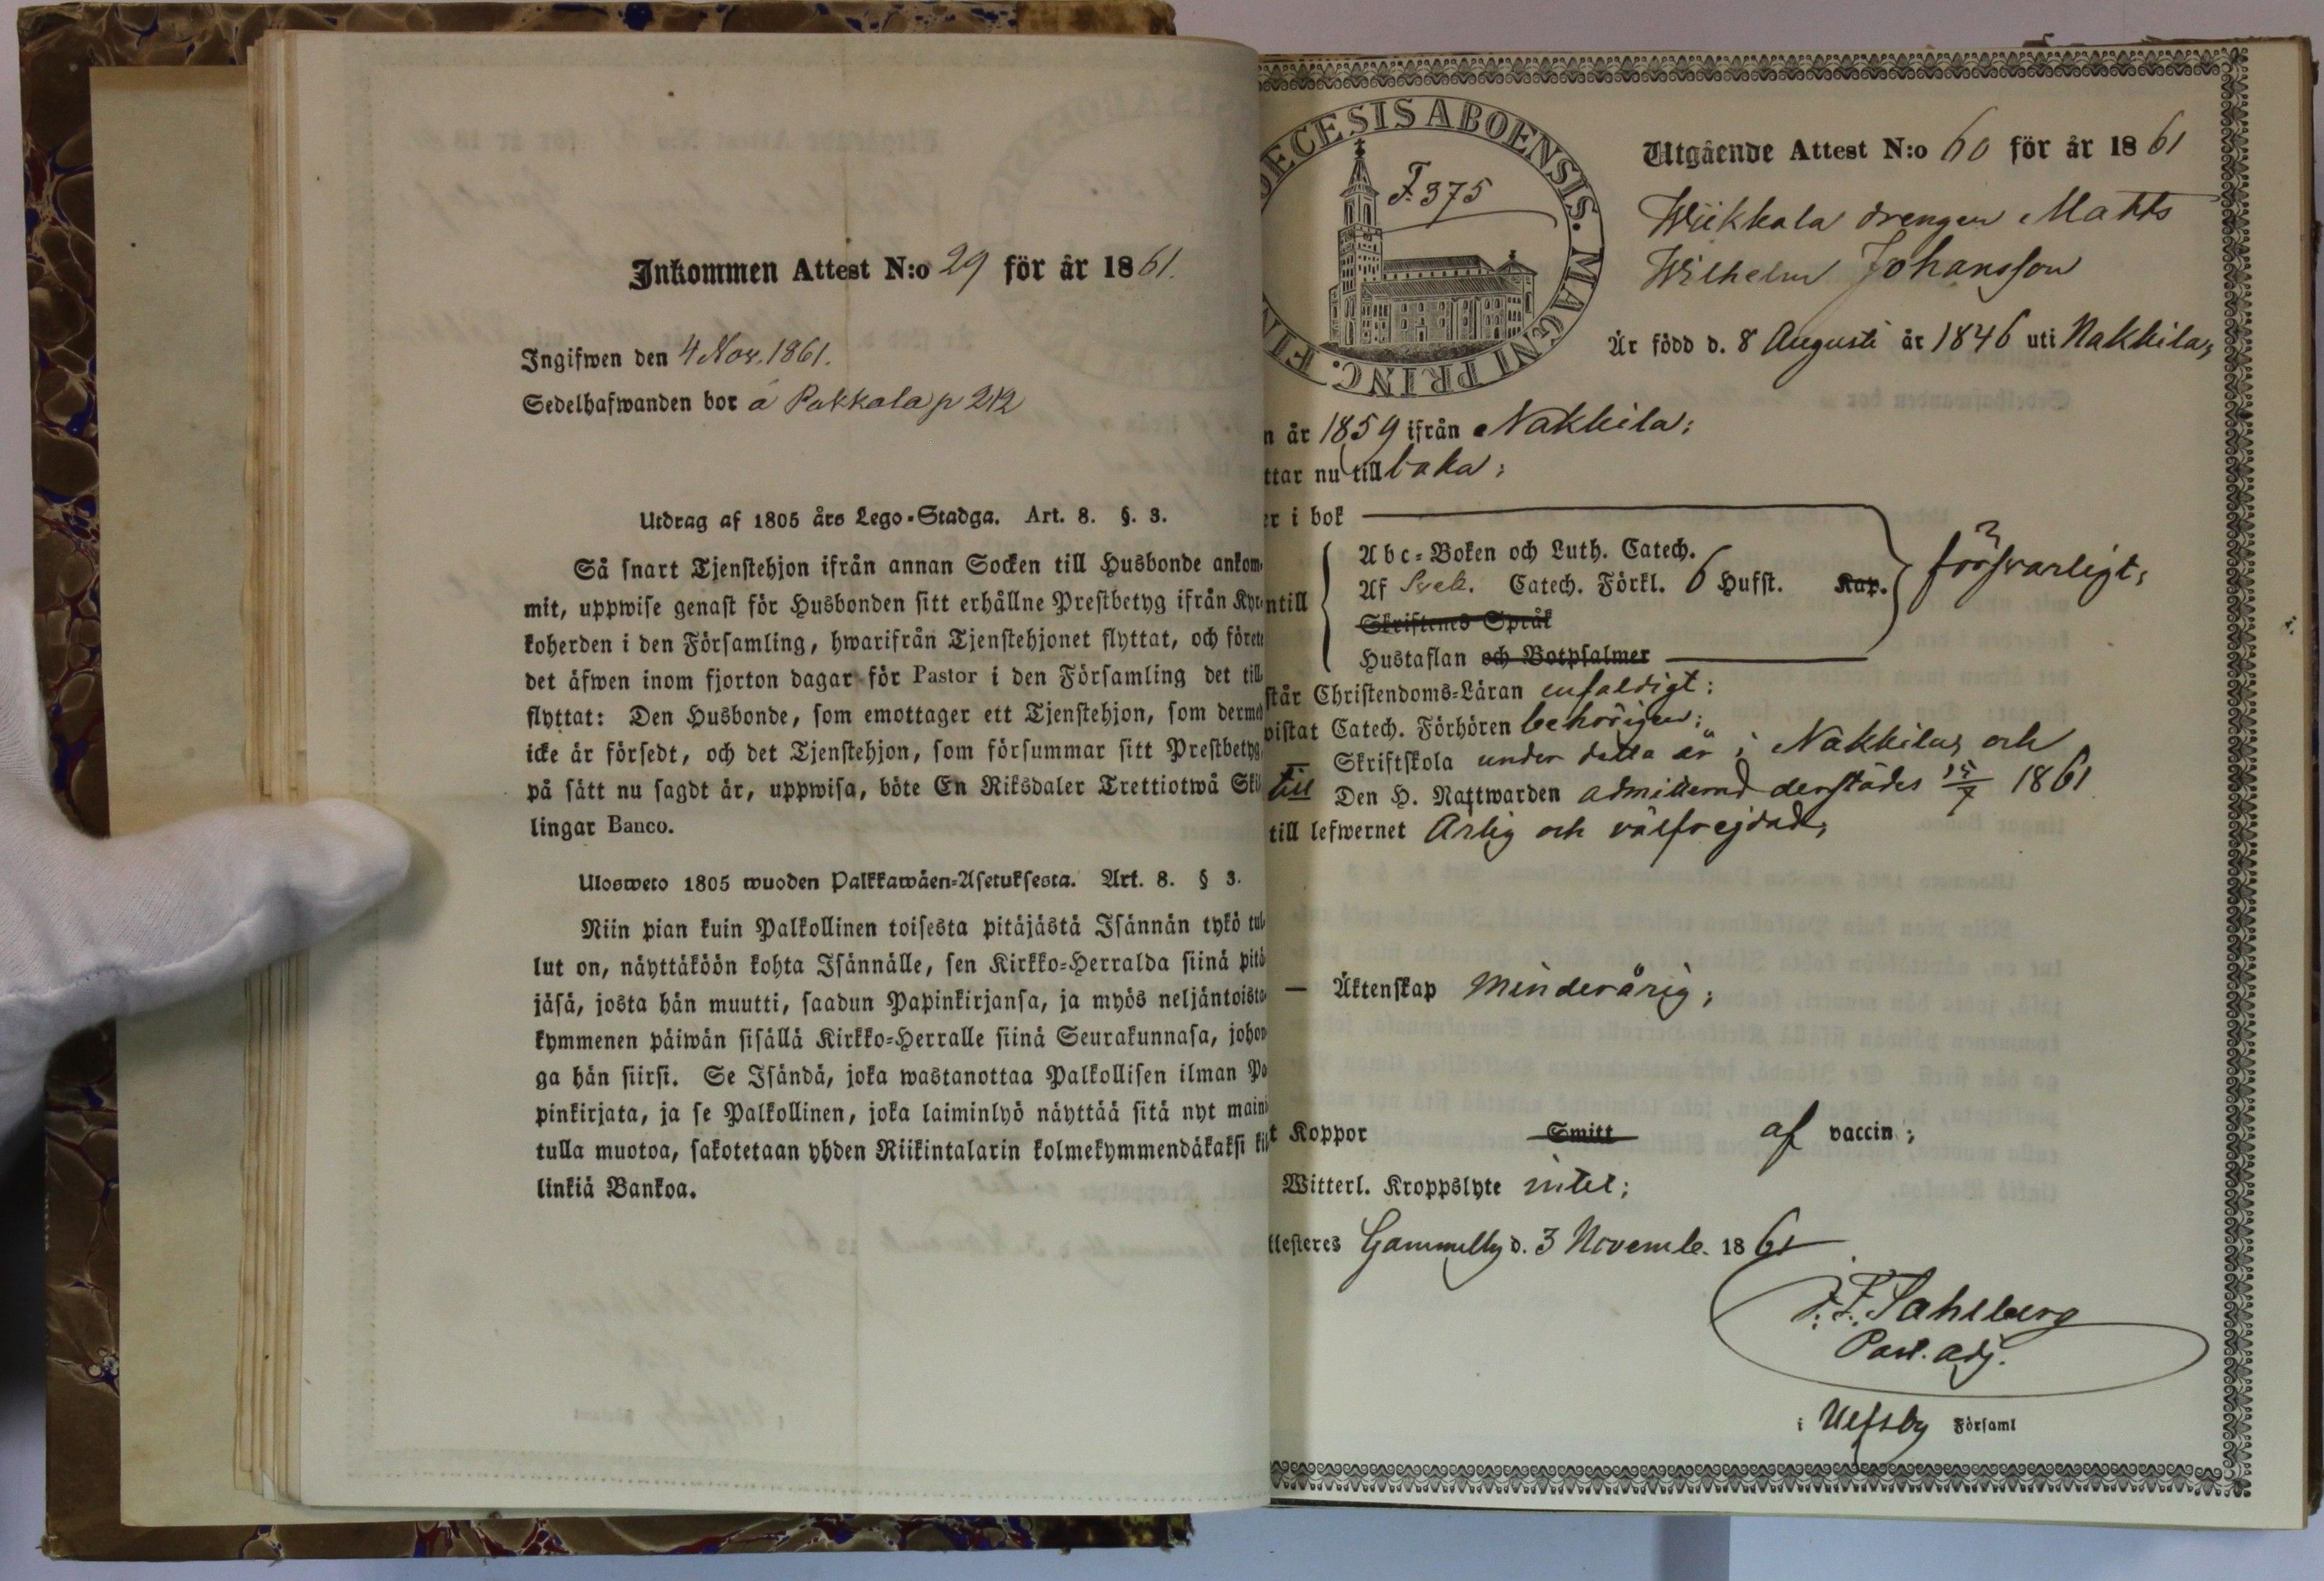 Inkommen Attest N:o 29 för år 1861.
Ingifwen den 4 Nov. 1861.
Sedelhafwanden bor å Pakkala p 212
Utdrag af 1805 års Lego-Stadga. Art. 8. §. 3.
Så snart Tjenstehjon ifrån annan Socken till Husbonde ankom-
mit, uppwise genast för Husbonden sitt erhållne Prestbetyg ifrån Kyr-
koherden i den Församling, hwarifrån Tjenstehjonet flyttat, och förete
det äfwen inom fjorton dagar för Pastor i den Församling det till-
flyttat: Den Husbonde, som emottager ett Tjenstehjon, som dermed
icke är försedt, och det Tjenstehjon, som försummar sitt Prestbetyg,
på sätt nu sagdt är, uppwisa, böte En Riksdaler Trettiotwå Skil
lingar Banco.
Ulosweto 1805 wuoden Palkkawäen-Asetuksesta. Art. 8. § 3.
Niin pian kuin Palkollinen toisesta pitäjästä Isännän tykö tul-
lut on, näyttäköön kohta Isännälle, sen Kirkko-Herralda siinä pitä
jäsä, josta hän muutti, saadun Papinkirjansa, ja myös neljäntoista-
kymmenen päiwän sisällä Kirkko-Herralle siinä Seurakunnasa, johon-
ga hän siirsi. Se Isändä, joka wastanottaa Palkollisen ilman Pa
pinkirjata, ja se Palkollinen, joka laiminlyö näyttää sitä nyt maini
tulla muotoa, sakotetaan yhden Riikintalarin kolmekymmendäkaksi kil
linkiä Bankoa.
DECESIS ABOENSIS. MAGNI PRINC. FIN
F. 375
Utgående Attest N:o 60 för år 1861
Wiikkala drengen Matts
Wilhelm Johansson
Är född d. 8 Augusti år 1846 uti Nakkila,
n år 1859 ifrån Nakkila;
ttar nu tillbaka;
er i bok
Abc-Boken och Luth. Catech.
ntill Af Sveb. Catech. Förkl. 6 Hufst. Kap. försvarligt;
Skriftenes Språk
Hustaflan och Botpsalmer
står Christendoms-Läran enfaldigt;
vistat Catech. Förhören behörigen;
Skriftskola under detta år i Nakkila, och
till Den H. Nattwarden admitterad derstädes 15/7 1861
till lefwernet Ärlig och välfrejdad,
— Äktenskap Minderårig;
t Koppor Smitt af vaccin;
Witterl. Kroppslyte intet;
ttesteres Gammelby d. 3 Novemb. 1861
F. F. Sahlberg
Past. adj.
i Ulfsby Församl